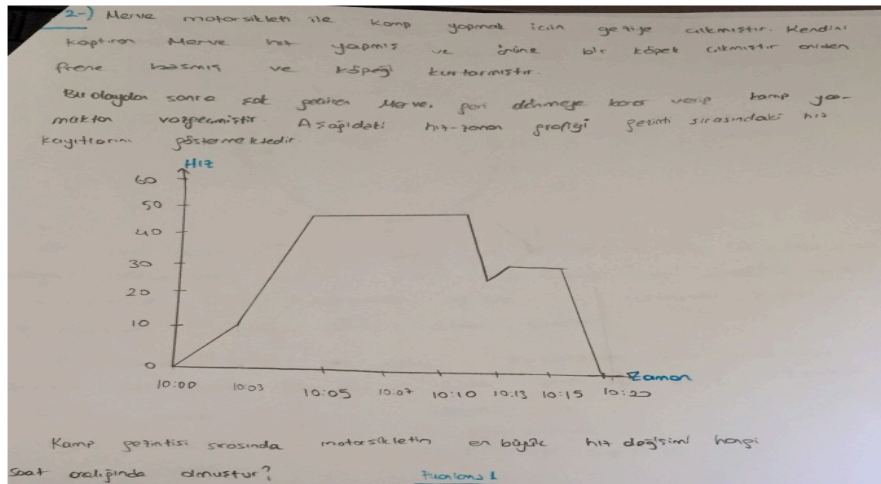 2-) Merve motorsikleti ile kamp yapmak için geziye çıkmıştır. Kendini
kaptıran Merve hız yapmış ve önüne bir köpek çıkmıştır aniden
frene basmış ve köpeği kurtarmıştır.
Bu olaydan sonra şok geçiren Merve, geri dönmeye karar verip kamp yap-
maktan vazgeçmiştir. Aşağıdaki hız-zaman grafiği gezinti sırasındaki hız
kayıtlarını göstermektedir.
Hız
60
50
40
30
20
10
0
10:00 10:03 10:05 10:07 10:10 10:13 10:15 10:20
Zaman
Kamp gezintisi sırasında motorsikletin en büyük hız değişimi hangi
saat aralığında olmuştur?